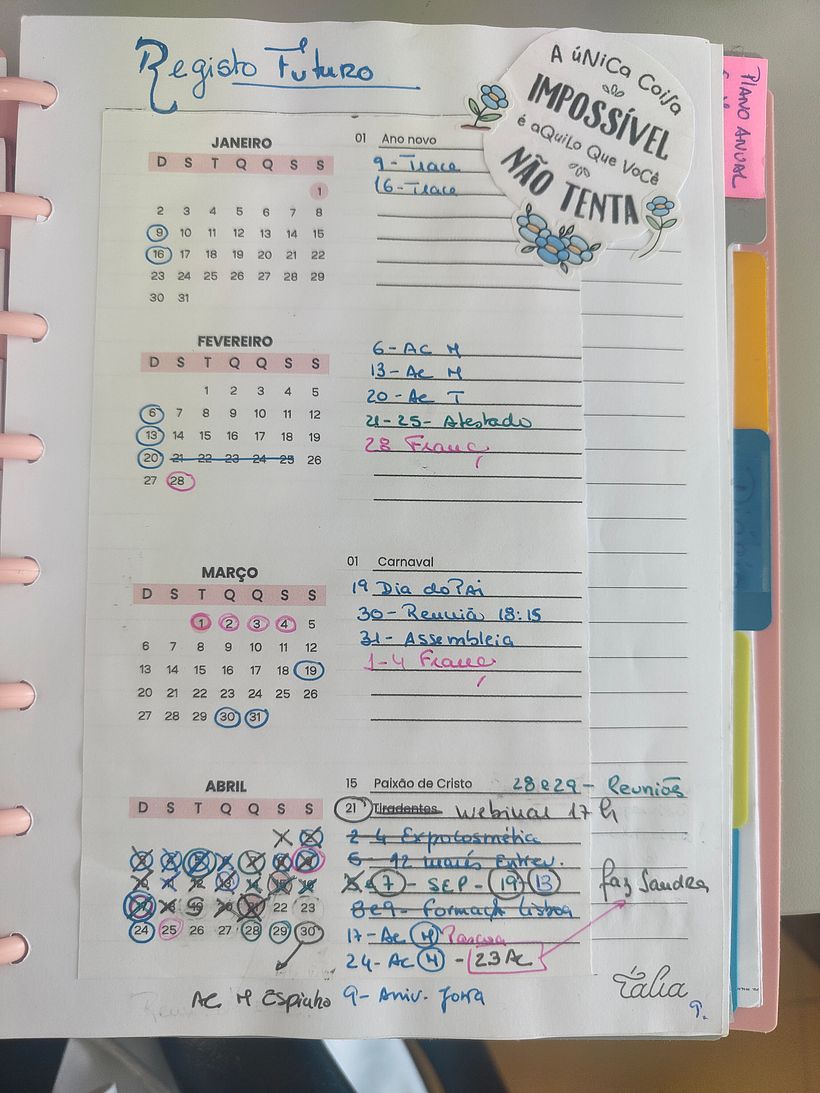 Registo Futuro
A úNiCa Coisa
IMPOSSÍVEL
é aQuiLo Que VoCê
NÃO TENTA
PlANO ANUAL
JANEIRO
D S T Q Q S S
1
2 3 4 5 6 7 8
9 10 11 12 13 14 15
16 17 18 19 20 21 22
23 24 25 26 27 28 29
30 31
01 Ano novo
9 - Troca
16 - Troca
FEVEREIRO
D S T Q Q S S
1 2 3 4 5
6 7 8 9 10 11 12
13 14 15 16 17 18 19
20 21 22 23 24 25 26
27 28
6 - AC M
13 - AC M
20 - AC T
21 - 25 - Atestado
28 França
MARÇO
D S T Q Q S S
1 2 3 4 5
6 7 8 9 10 11 12
13 14 15 16 17 18 19
20 21 22 23 24 25 26
27 28 29 30 31
01 Carnaval
19 Dia do Pai
30 - Reunião 18:15
31 - Assembleia
1 - 4 França
ABRIL
D S T Q Q S S
22 23
24 25 26 27 28 29 30
15 Paixão de Cristo 28 e 29 - Reuniões
21 Tiradentes Webinar 17 h
2 - 4 Expocosmética
6 - 12 mais Entrev.
7 - SEP - 19 13 faz Sandra
8 e 9 - Formação Lisboa
17 - AC M Pascoa
24 - AC M - 23 AC
AC M Espinho 9 - Aniv.
tália